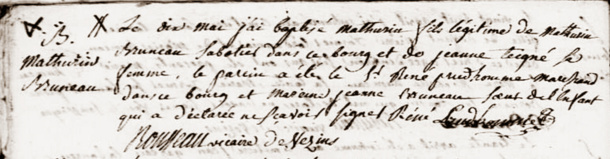 B.
Mathurin
Bruneau
Le dix mai j'ai baptisé mathurin fils légitime de mathurin
Bruneau sabotier dans ce bourg et de jeanne teigné sa
femme, le parein a eté le Sr René prudhomme marchand
dans ce bourg et mareine jeanne bruneau sœur de l'enfant
qui a déclarée ne scavoir signer René Prudhomme
Rousseau vicaire de Vezins